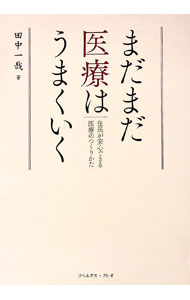 まだまだ
医療は
うまくいく
住民が安心できる
医療のつくりかた
田中一哉 著
リベルタス・クレオ